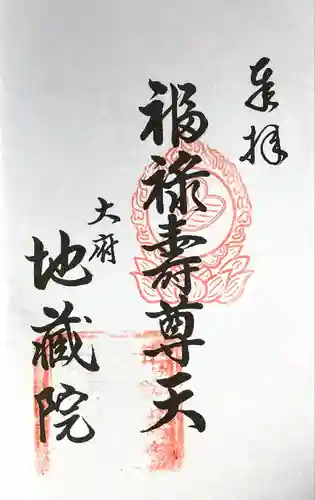 奉拝
福禄壽尊天
大府
地蔵院